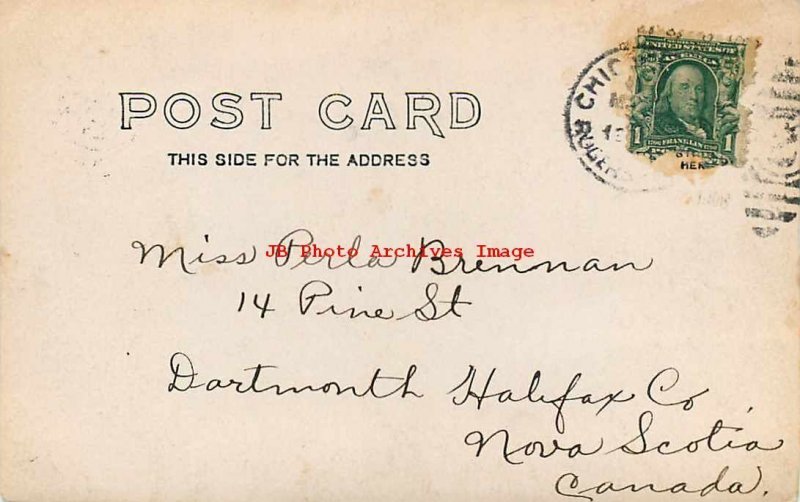 POST CARD
THIS SIDE FOR THE ADDRESS
UNITED STATES OF AMERICA
FRANKLIN
1 1
CHIC
ROGERS
HER
JB Photo Archives Image
Miss Perla Brennan
14 Pine St
Dartmonth Halifax Co,
Nova Scotia
Canada.